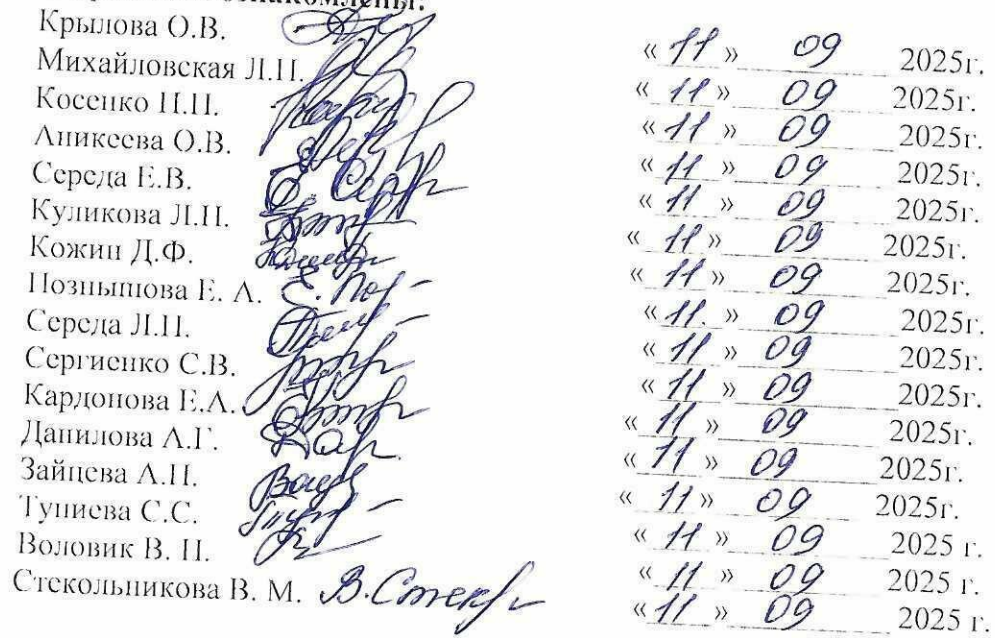 ознакомлены:
Крылова О.В. « 11 » 09 2025г.
Михайловская Л.Н. « 11 » 09 2025г.
Косенко Н.Н. « 11 » 09 2025г.
Аникеева О.В. « 11 » 09 2025г.
Середа Е.В. « 11 » 09 2025г.
Куликова Л.Н. « 11 » 09 2025г.
Кожин Д.Ф. « 11 » 09 2025г.
Познышова Е. А. Е. Поз « 11 » 09 2025г.
Середа Л.Н. « 11 » 09 2025г.
Сергиенко С.В. « 11 » 09 2025г.
Кардонова Е.А. « 11 » 09 2025г.
Данилова А.Г. « 11 » 09 2025г.
Зайцева А.Н. « 11 » 09 2025г.
Туниева С.С. « 11 » 09 2025 г.
Воловик В. Н. « 11 » 09 2025 г.
Стекольникова В. М. В.Стек « 11 » 09 2025 г.